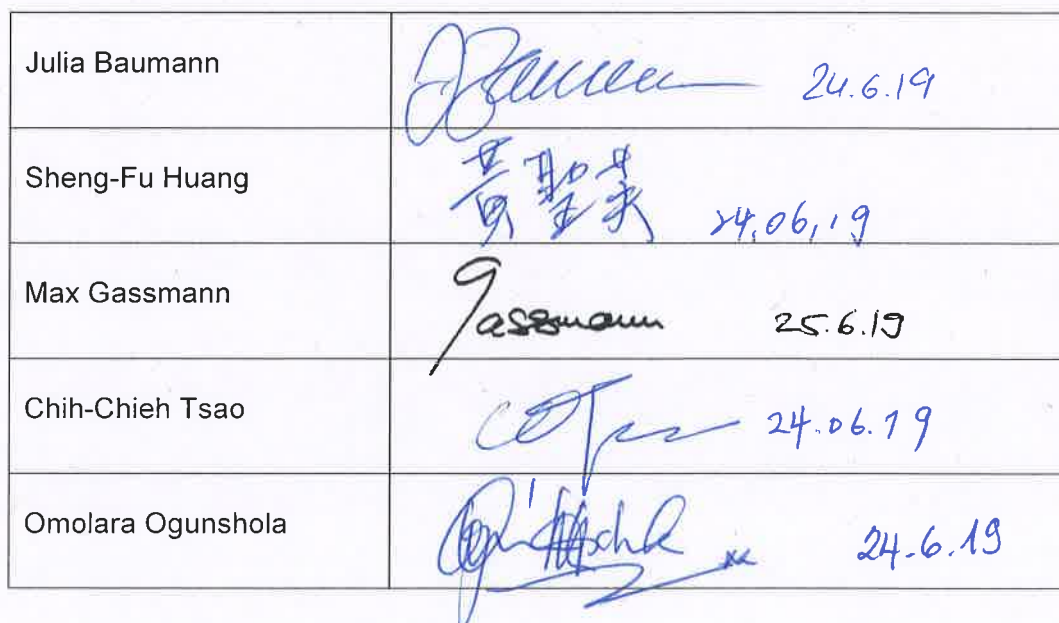 Julia Baumann
JBaumann 24.6.19
Sheng-Fu Huang
黃聖芙 24.06.19
Max Gassmann
Gassmann 25.6.19
Chih-Chieh Tsao
24.06.19
Omolara Ogunshola
24.6.19